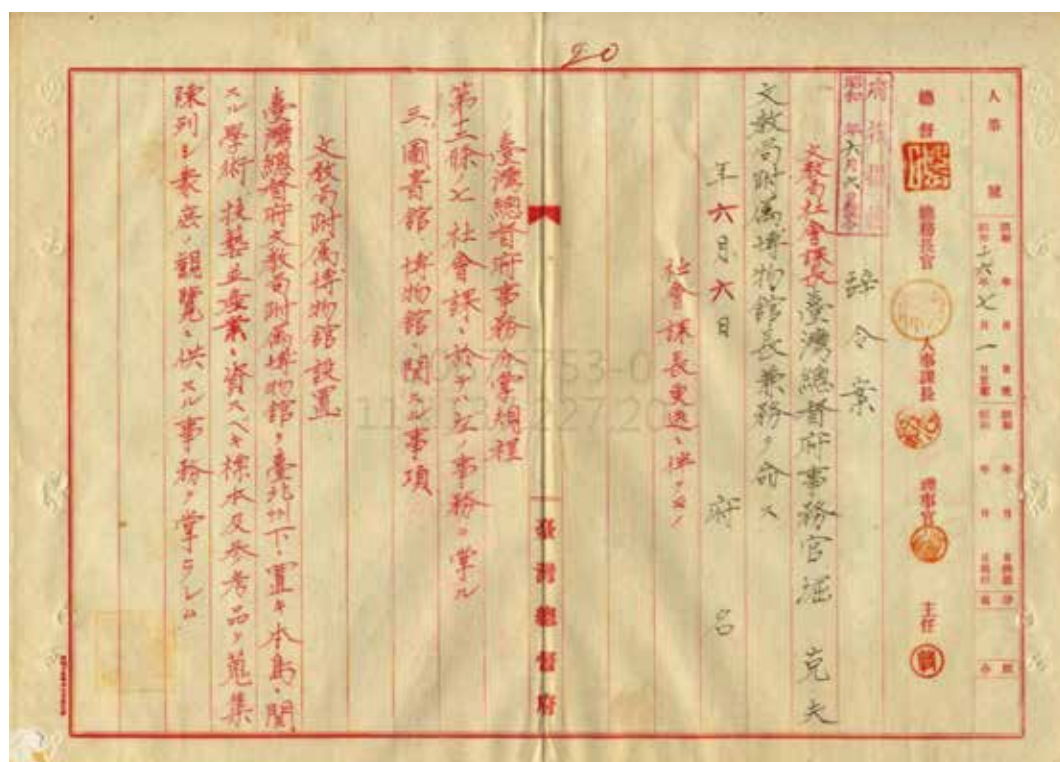 20
人第 號
昭和十六年七月一日
總督
總務長官
人事課長
理事官
主任
府報掲載
昭和 年六月六日
辞令案
文教局社會課長 臺灣總督府事務官 堀 克夫
文教局附属博物館長兼務ヲ命ス
年六月六日 府名
社會課長更迭ニ伴フモノ
臺灣總督府
臺灣總督府事務分掌規程
第三條ノ七 社會課ニ於テハ左ノ事務ヲ掌ル
三、圖書館、博物館ニ関スル事項
文教局附属博物館設置
臺灣總督府文教局附属博物館ヲ臺北州下ニ置キ本島ニ関
スル學術、技藝並産業ニ資スヘキ標本及参考品ヲ蒐集
陳列シ衆庶ノ觀覧ニ供スル事務ヲ掌ラシム